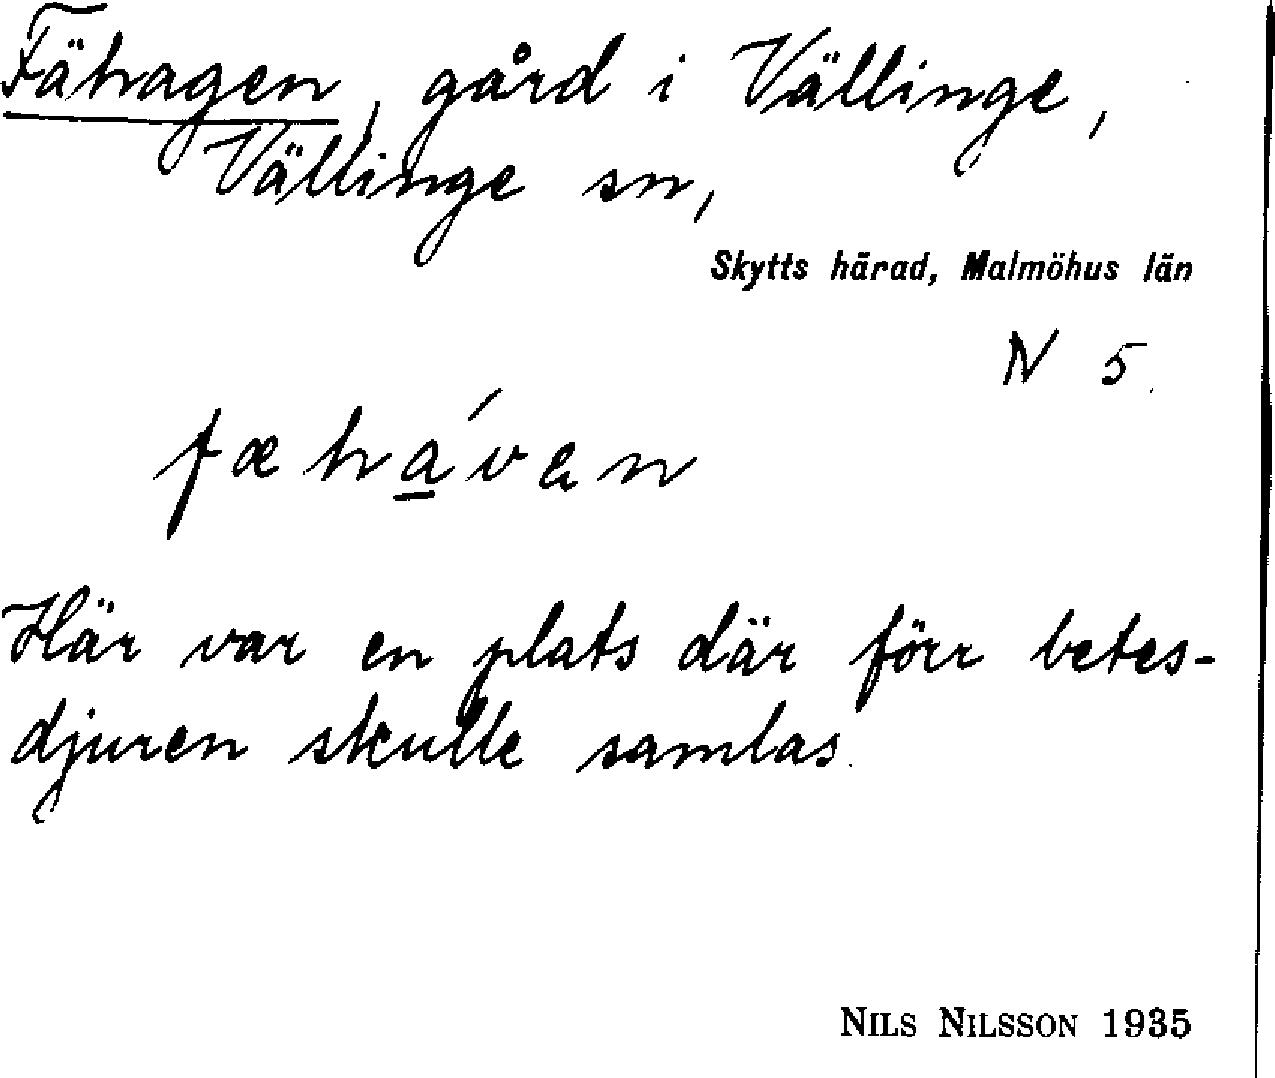 Fähagen, gård i Vällinge,
Vällinge sn,
Skytts härad, Malmöhus län
N 5.
fæhá̲ven
Här var en plats där förr betes-
djuren skulle samlas.
NILS NILSSON 1935